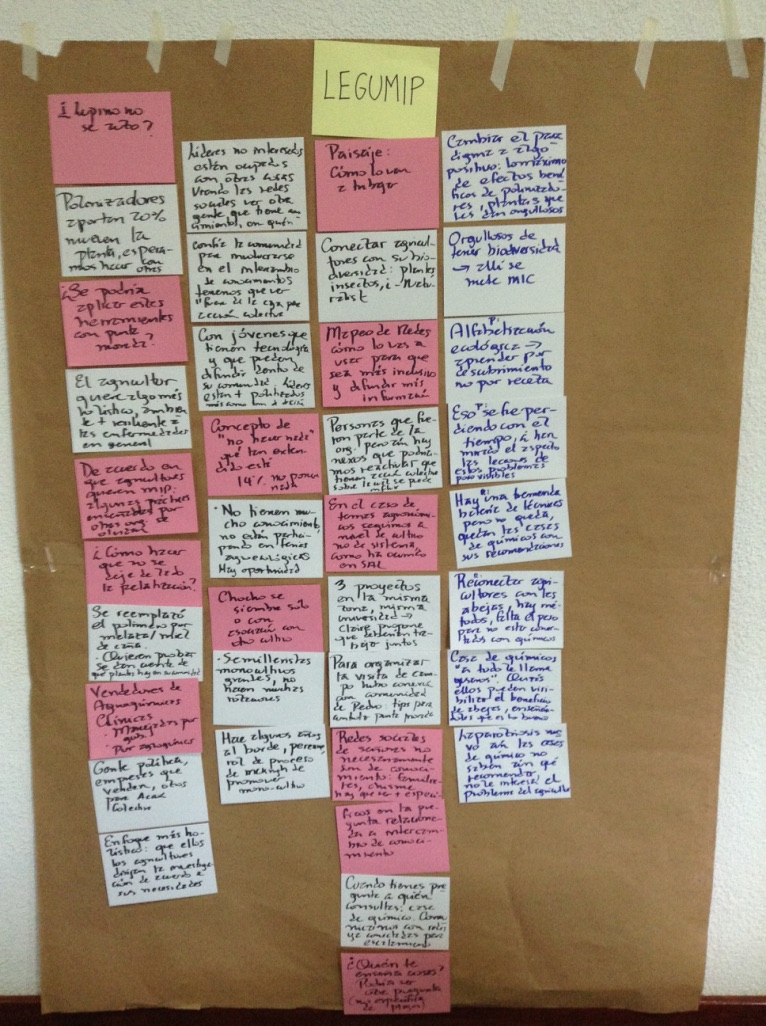 LEGUMIP
¿Lupino no
se usó?
Polinizadores
aportan 20%
mueven la
planta, espera-
mos hacer con
otros
¿Se podría
aplicar estas
herramientas
con punta
morada?
El agricultor
quiere algo más
holístico, ambien
te + resiliente a
las enfermedades
en general
De acuerdo en
que agricultores
quieren MIP.
algunas prácticas
por
otras org. se
¿Cómo hacer
que no se
deje de lado
la peletización?
Se reemplazó
el polímero por
melaza/miel
de caña.
· Quieren probar
Se dan cuenta de
que plantas
Vendedores de
Agroquímicos
Clínicas
· Manejadas por
gob.
· por agroquímicos
Gente política,
empresas que
venden, otros
para Acción
Colectiva
Enfoque más ho-
lístico: que ellos
los agricultores
dirijan la investiga
ción de acuerdo a
sus necesidades
Líderes no interesados
están ocupados
con otras cosas
Usando las redes
sociales ver otra
gente que tiene
en quién
confía la comunidad
para involucrarse
en el intercambio
de conocimientos
tenemos que ver
"fuera de la caja para
acción colectiva
Con jóvenes que
tienen tecnología
y que pueden
difundir dentro de
su comunidad. Líderes
están + politizados
Concepto de
"no hacer nada"
qué tan exten
dido está
14% no ponen
nada
· No tienen mu
cho conocimiento,
no están partici
pando en ferias
agroecológicas
Hay oportunidad
Chocho se
siembra solo
o con
asociación con
otro cultivo
· Semilleristas
monocultivos
grandes, no
hacen muchas
rotaciones
Hace algunos años
al borde, pero
rol de proceso
de
promover
mono-cultivo
Paisaje:
Cómo lo van
a trabajar
Conectar agricul-
tores con su bio-
diversidad: plantas
insectos, i-Natu-
ralist
Mapeo de Redes
cómo lo vas a
usar para que
sea más inclusivo
y difundir más
información
Personas que fue-
ron parte de la
org. pero aún hay
nexos que podría-
mos reactivar que
tienen acción colectiva
sobre la cual se puede
influir
En el caso de
temas agronómi-
cos seguimos a
nivel de cultivo
no de sistema,
como ha ocurrido
en SAL
3 proyectos
en la misma
zona, misma
universidad →
Claire propone
que deberían tra-
bajar juntos
Para organizar
la visita de cam-
po hubo conexión
con comunidad
de Pedro: tips para
combatir punta morada
Redes sociales
de señores no
necesariamente
son de conoci-
miento: familia-
res, chisme,
hay que ser + específi
ficos en la pre
gunta relaciona-
da a intercam-
bio de conoci-
miento
Cuando tienes pre
gunta a quién
consultas: caso
de químico. Comu
nicarnos con redes
ya conectadas para
escalamiento
¿Quién te
enseña cosas?
Podría ser
otra pregunta
(no específica
de plagas)
Cambiar el para
digma a algo
positivo: lo máximo
de efectos bené
ficos de polinizado-
res, plantas que
les dan orgullosos
Orgullosos de
tener biodiversidad
→ allí se
mete MIC
P:
Alfabetización
ecológica →
aprender por
descubrimiento
no por receta
P:
Eso se fue per-
diendo con el
tiempo, a
el aspecto
las lecciones de
estos problemas
poco visibles
P:
Hay una tremenda
batería de técnicas
pero no queda,
quedan las casas
de químicos con
sus recomendaciones
Reconectar agri-
cultores con las
abejas, hay mé-
todos, falta el paso
para no estar conec-
tados con químicos
Casa de químicos
"a todo le llama
gusanos". Quizás
ellos pueden visi-
bilizar el beneficio
de abejas, enseñán-
doles que es lo bueno
La parabiosis nue
vo aún las casas
de químico no
saben aún qué
recomendar
no le interesa el
problema del agricultor